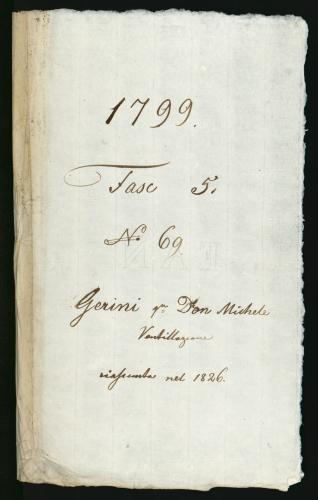 1799.
Fasc 5.
No 69
Gerini qm Don Michele
Ventillazione
riassunta nel 1826.